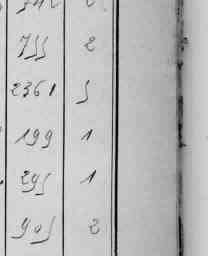 755 2
2361 5
199 1
295 1
905 2